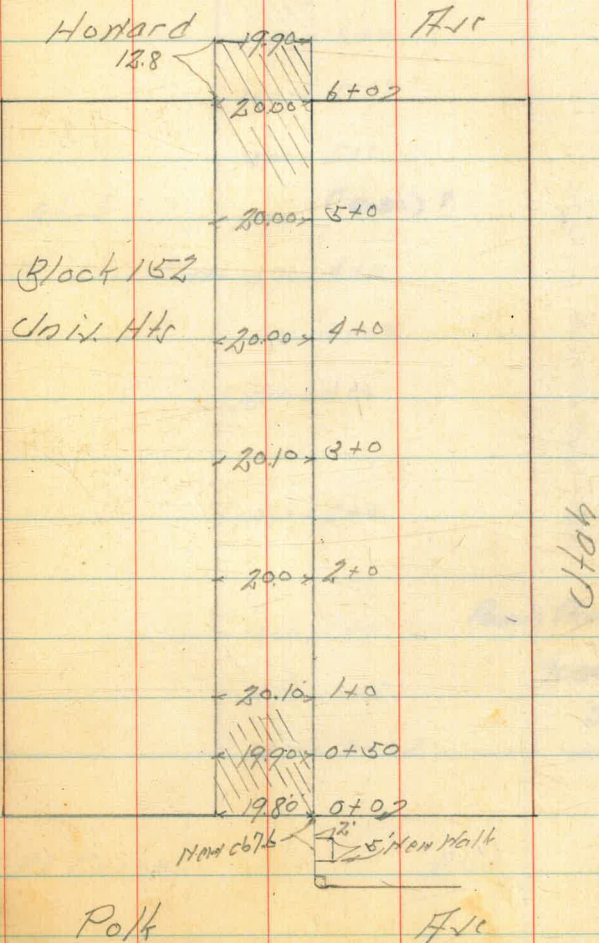 Howard Ave
12.8
19.90
20.00 6+0?
20.00 5+0
Block 152
Univ. Hts
20.00 4+0
20.10 3+0
20.0 2+0
Utah
20.10 1+0
19.90 0+50
19.80 0+0?
New cb 7.6 2' 5' New Walk
Polk Ave